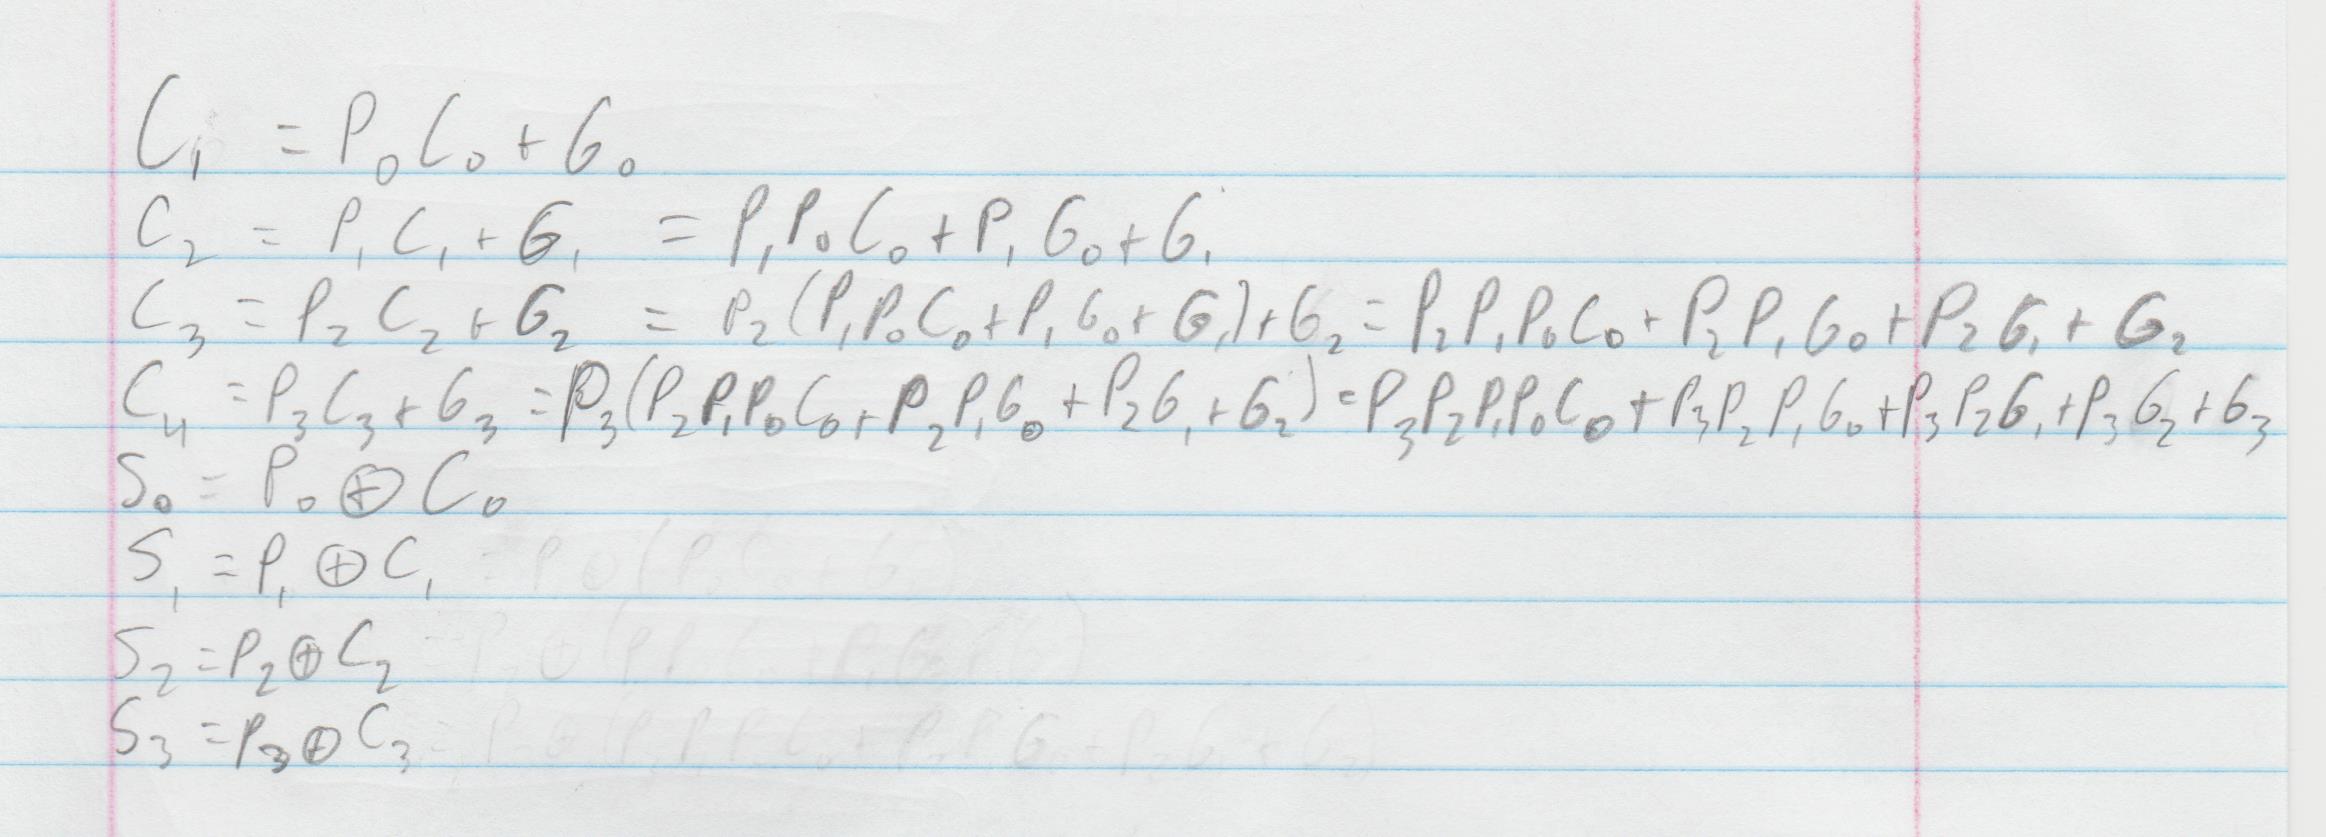 C₁ = P₀C₀ + G₀
C₂ = P₁C₁ + G₁ = P₁P₀C₀ + P₁G₀ + G₁
C₃ = P₂C₂ + G₂ = P₂(P₁P₀C₀ + P₁G₀ + G₁) + G₂ = P₂P₁P₀C₀ + P₂P₁G₀ + P₂G₁ + G₂
C₄ = P₃C₃ + G₃ = P₃(P₂P₁P₀C₀ + P₂P₁G₀ + P₂G₁ + G₂) = P₃P₂P₁P₀C₀ + P₃P₂P₁G₀ + P₃P₂G₁ + P₃G₂ + G₃
S₀ = P₀ ⊕ C₀
S₁ = P₁ ⊕ C₁
S₂ = P₂ ⊕ C₂
S₃ = P₃ ⊕ C₃